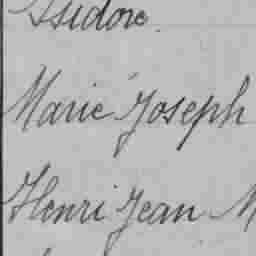 Isidore.
Marie Joseph
Henri Jean M